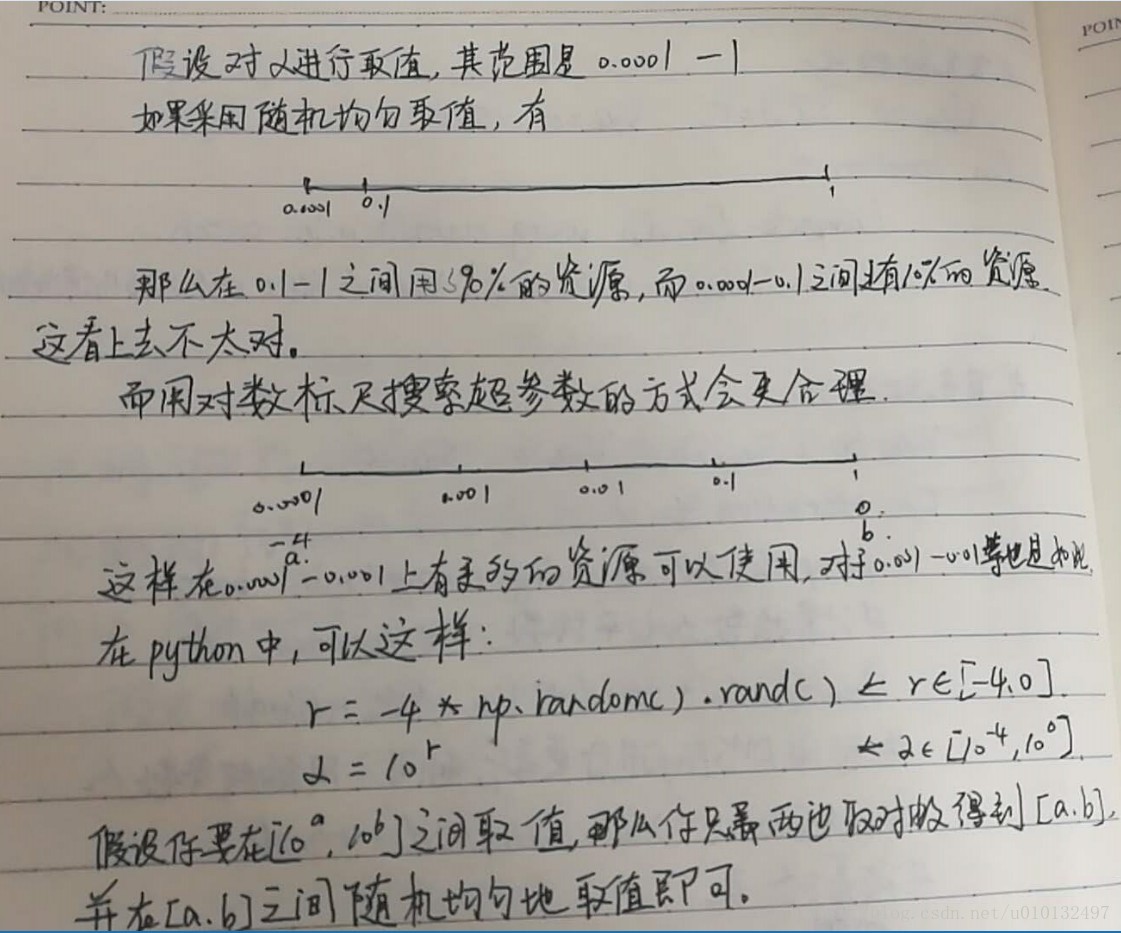 POINT:
POIN
假设对α进行取值,其范围是 0.0001 -1
如果采用随机均匀取值,有
0.0001 0.1 1
那么在0.1-1之间用了90%的资源,而0.0001-0.1之间只有10%的资源
这看上去不太对。
而用对数标尺搜索超参数的方式会更合理.
0.0001 0.001 0.01 0.1 1
-4 0.
a. b.
这样在0.0001-0.001上有更多的资源可以使用,对于0.001-0.01等也是如此.
在python中,可以这样:
r = -4 * np.random().rand() ← r∈[-4,0].
α = 10^r ← α∈[10^-4,10^0].
假设你要在[10^a,10^b]之间取值,那么你只需两边取对数得到[a.b],
并在[a.b]之间随机均匀地取值即可。
csdn.net/u010132497